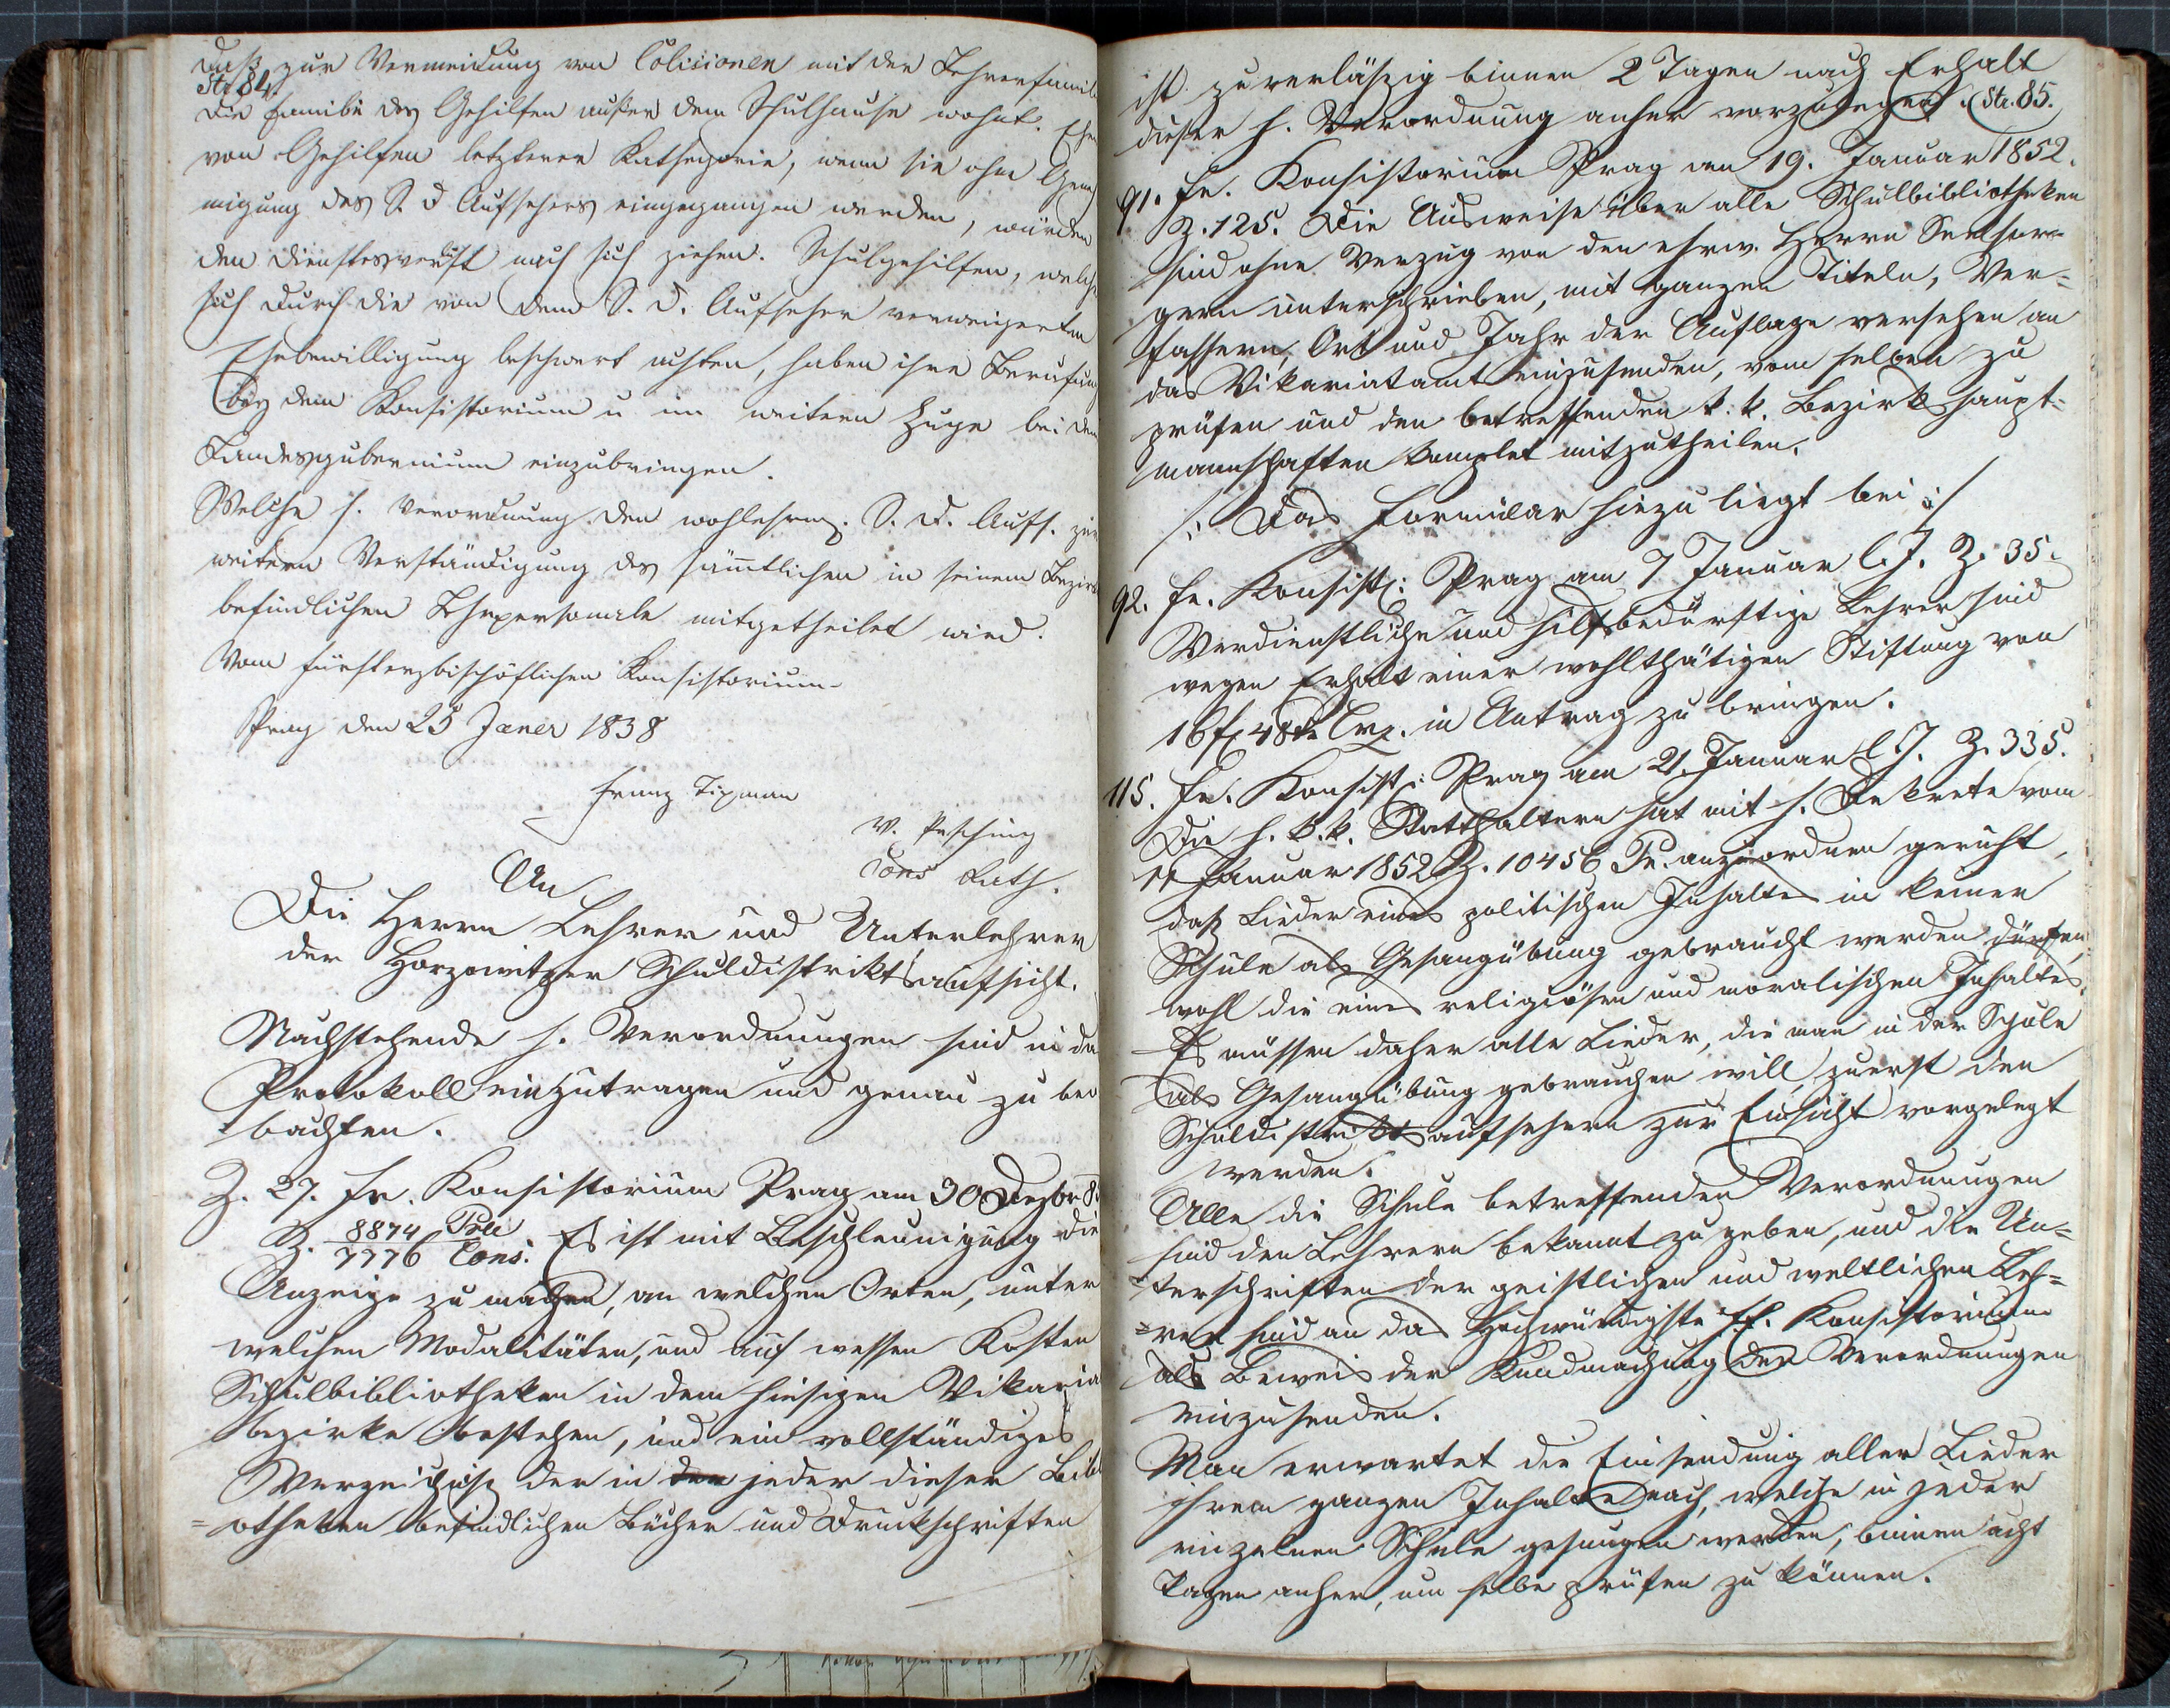 daß zur Vermeidung von Colisionen mit der Lehrerfamili
Str 84.
die Familie des Gehilfen außer dem Schulhause wohnt. Ehen
von Gehilfen letzterer Kathegorie, wenn sie ohne Geneh
migung des S. d Aufsehers eingegangen werden, würden
den Dienstesverlust nach sich ziehen. Schulgehilfen, welche
sich durch die von dem S. d. Aufseher verweigerten
Ehebewilligung beschwert achten, haben ihre Berufung
bey dem Konsistorium u im weitern Zuge bei dem
Landesgubernium einzubringen.
Welche h. Verordnung den wohlehrw. S. d. Aufs. zur
weitern Verständigung des sämtlichen in seinem Bezirk
befindlichen Lehrpersonale mitgetheilet wird.
Vom fürsterzbischöflichen Konsistorium
Prag den 25 Jäner 1838
Franz Tipman
W. Pesching
Cons Rath.
An
Die Herrn Lehrer und Unterlehrer
der Horzowitzer Schuldistriktsaufsicht.
Nachstehende h. Verordnungen sind in da
Protokoll einzutragen und genau zu beo
bachten.
Z. 27. fe. Konsistorium Prag am 30 Dezbr 8
Z. 8874 Prae
7776 Cons. Es ist mit Beschleunigung die
Anzeige zu machen, an welchen Orten, unter
welchen Modalitäten, und auf wessen Kosten
Schulbibliotheken in dem hiesigen Vikaria
bezirke bestehen, und ein vollständiges
Verzeichniß der in der jeder dieser Bibl
=otheken befindlichen Bücher und Druckschriften
ist zuverläßig binnen 2 Tagen nach Erhalt
dieser h. Verordnung anher vorzulegen. Str. 85.
91. fe. Konsistorium Prag am 19. Januar 1852.
Z. 125. Die Ausweise über alle Schulbibliotheken
sind ohne Verzug von den ehrw. Herrn Seelsor=
gern unterschrieben, mit ganzen Titeln, Ver=
fassern, Ort und Jahr der Auflage versehen an
das Vikariatamt einzusenden, vom selben zu
prüfen und den betreffenden k. k. Bezirkshaupt=
mannschaften komplet mitzutheilen.
/: Das Formular hiezu liegt bei :/
92. fe. Konsist: Prag am 7 Januar l. J. Z. 35.
Verdienstliche und hilfsbedürftige Lehrer sind
wegen Erhalt einer wohlthätigen Stiftung von
16 f 48 k in Antrag zu bringen.
115. fe. Konsist: Prag am 21. Januar l J. Z. 335.
Die h. k. k. Statthalterei hat mit h. Dekrete vom
11 Januar 1852 Z. 10456 Pr. anzuordnen geruht,
daß Lieder eines politischen Inhaltes in keiner
Schule als Gesangübung gebraucht werden dürfen,
wohl die eines religiösen und moralischen Inhaltes.
Es müssen daher alle Lieder, die man in der Schule
als Gesangübung gebrauchen will, zuerst den
Schuldistriktsaufsehern zur Einsicht vorgelegt
werden.
Alle die Schule betreffenden Verordnungen
sind den Lehrern bekannt zu geben, und die Un=
=terschriften der geistlichen und weltlichen Leh=
=rer sind an das Hochwürdigste fe. Konsistorium
als Beweis der Kundmachung der Verordnungen
einzusenden.
Man erwartet die Einsendung aller Lieder
ihrem ganzen Inhalte nach, welche in jeder
einzelnen Schule gesungen werden, binnen acht
Tagen anher, um selbe prüfen zu können.